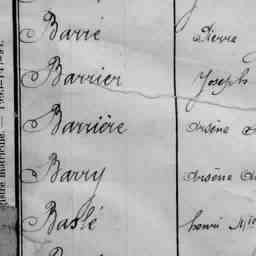 Barré Pierre
Barrier Joseph
Barrière Arsène
Barry Arsène
Baslé henri